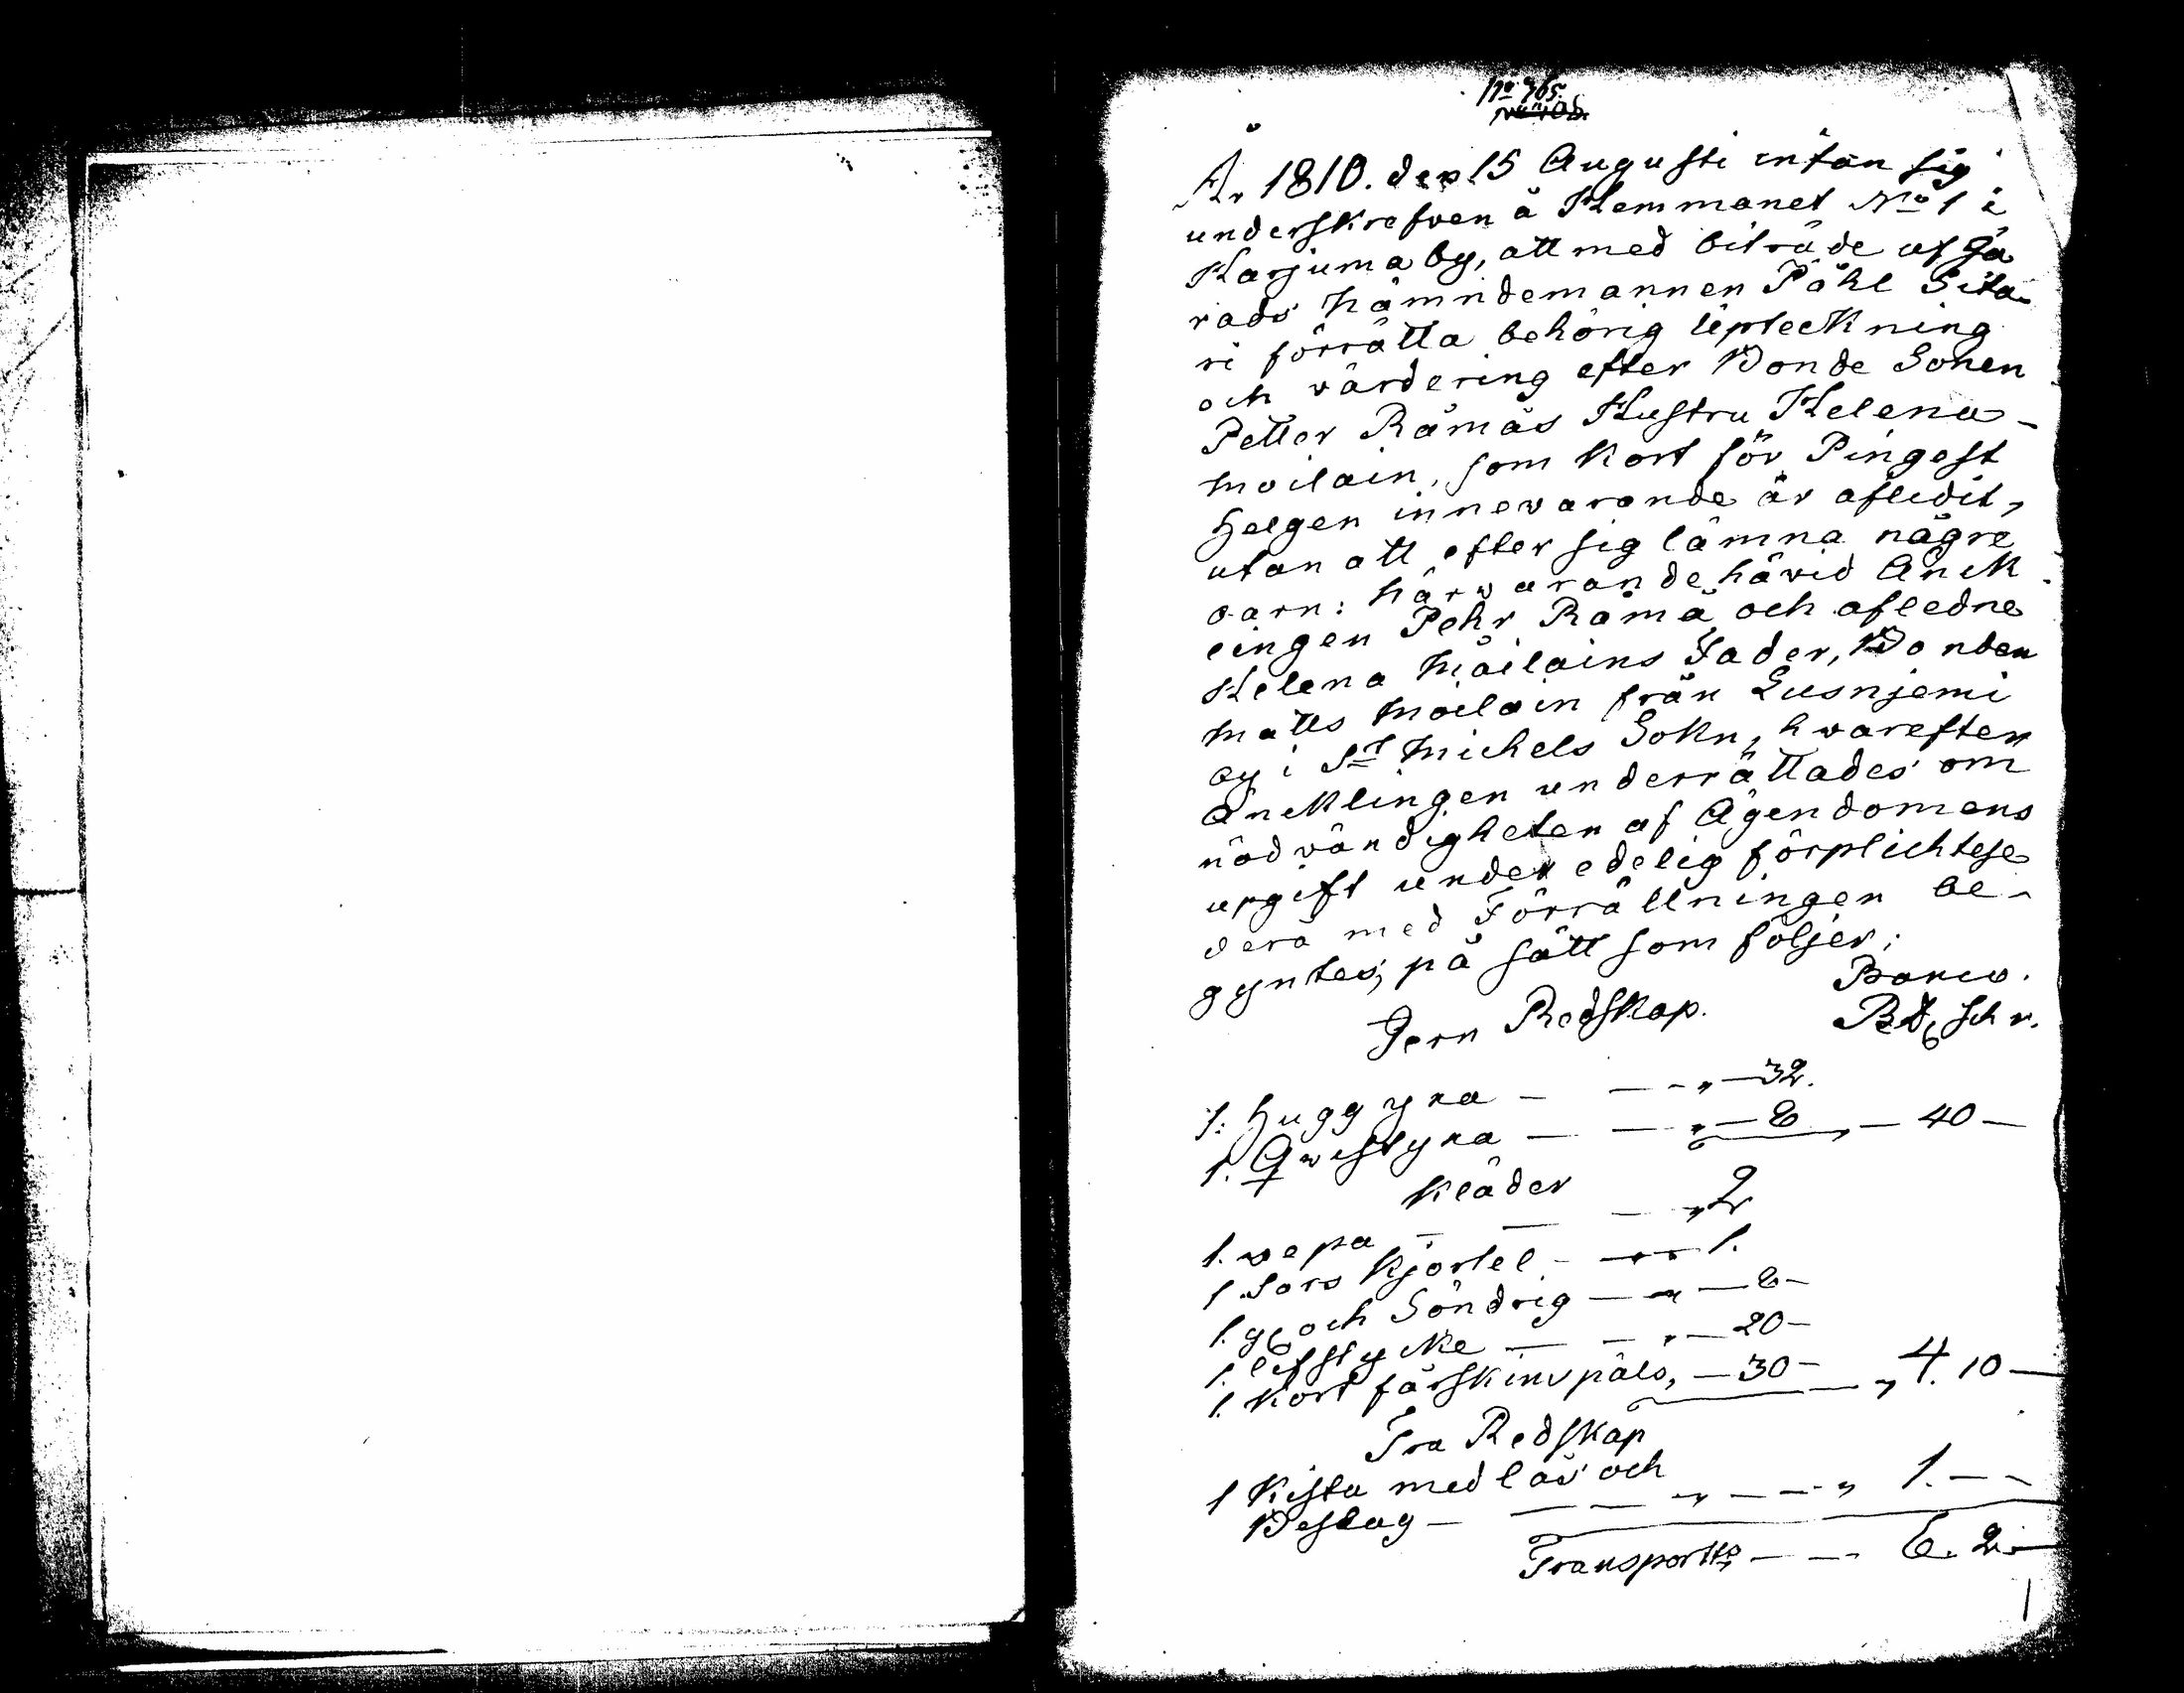 No 765.
År 1810. den 15 Augusti intan sig
underskrefven å Hemmanet No 1 i
Harjuma by, att med biträde af Hä
rads Nämndemannen Påhl Sita-
ri förrätta behörig Upteckning
och värdering efter Bonde Sonen
Petter Rämäs Hustru Helena
Moilain, som kort för Pingest
Helgen innewarande år aflidit,
utan att efter sig lämna någre
barn: närwarande härvid Änck
lingen Pehr Rämä och aflednes
Helena Moilains Fader, Bonden
Matts Moilain från Lusnjemi
by i St Michels Sokn, hwarefter
Äncklingen underrättades om
nödvändigheten af Ägendomens
upgift under edelig förplichtelse
derå med Förrättningen be-
gyntes, på sätt som följer;
Banco.
Jern Redskap. Rd schr.
1: Huggyxa - - - " - 32.
1. Qwistyxa - - " - 8 - 40 -
Kläder
1. wepa - - - " 2
1. Sars Kjortel - - " 1.
1. och Söndrig - " - 8 -
1. lifstycke - - " - 20 -
1. Kort fårskins päls, - 30 - " 4. 10 -
Trä Redskap
1 Kista med lås och
Beslag - - - " - - - " 1. - -
Transport - - - 6. 2. -
1